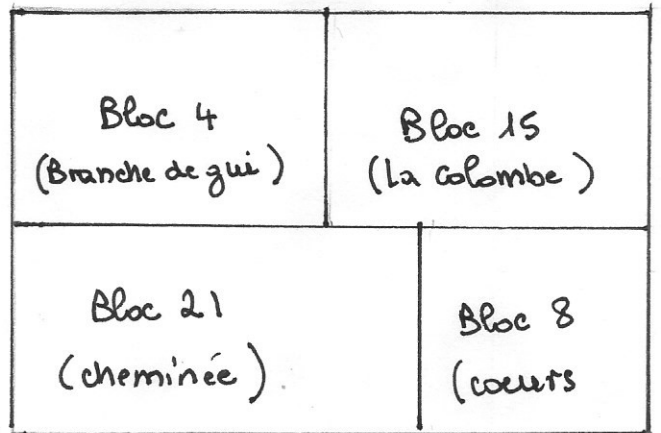 Bloc 4
(Branche de gui)
Bloc 15
(La colombe)
Bloc 21
(cheminée)
Bloc 8
(coeurs